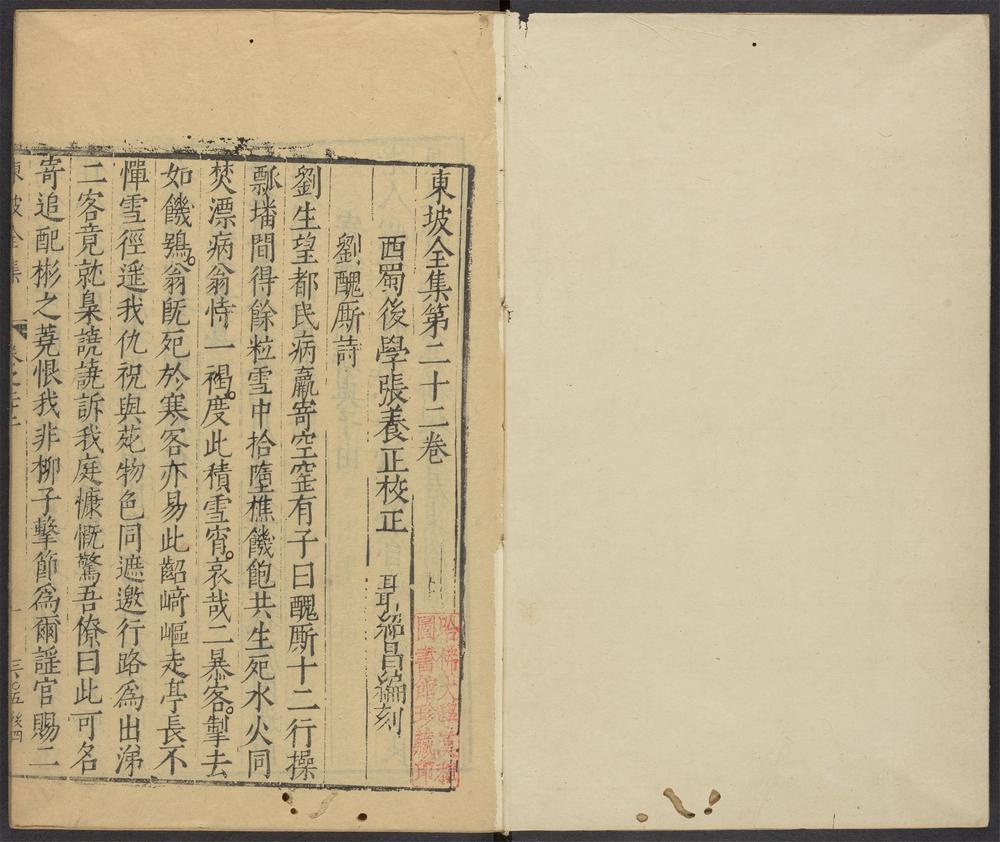 東坡全集第二十二卷
西蜀後學張養正校正 聶紹昌編刻
劉醜厮詩
劉生望都民病羸寄空窑有子曰醜厮十二行操
瓢墦間得餘粒雪中拾墮樵饑飽共生死水火同
焚漂病翁恃一褐度此積雪宵哀哉二暴客掣去
如饑鴞翁既死於寒客亦易此齠崎嶇走亭長不
憚雪徑遥我仇祝與苑物色同遮邀行路爲出涕
二客竟就梟譊譊訴我庭慷慨驚吾僚曰此可名
寄追配彬之蕘恨我非柳子擊節爲爾謡官賜二
東坡全集 卷之二十二 一
哈佛大學漢和圖書館珍藏印